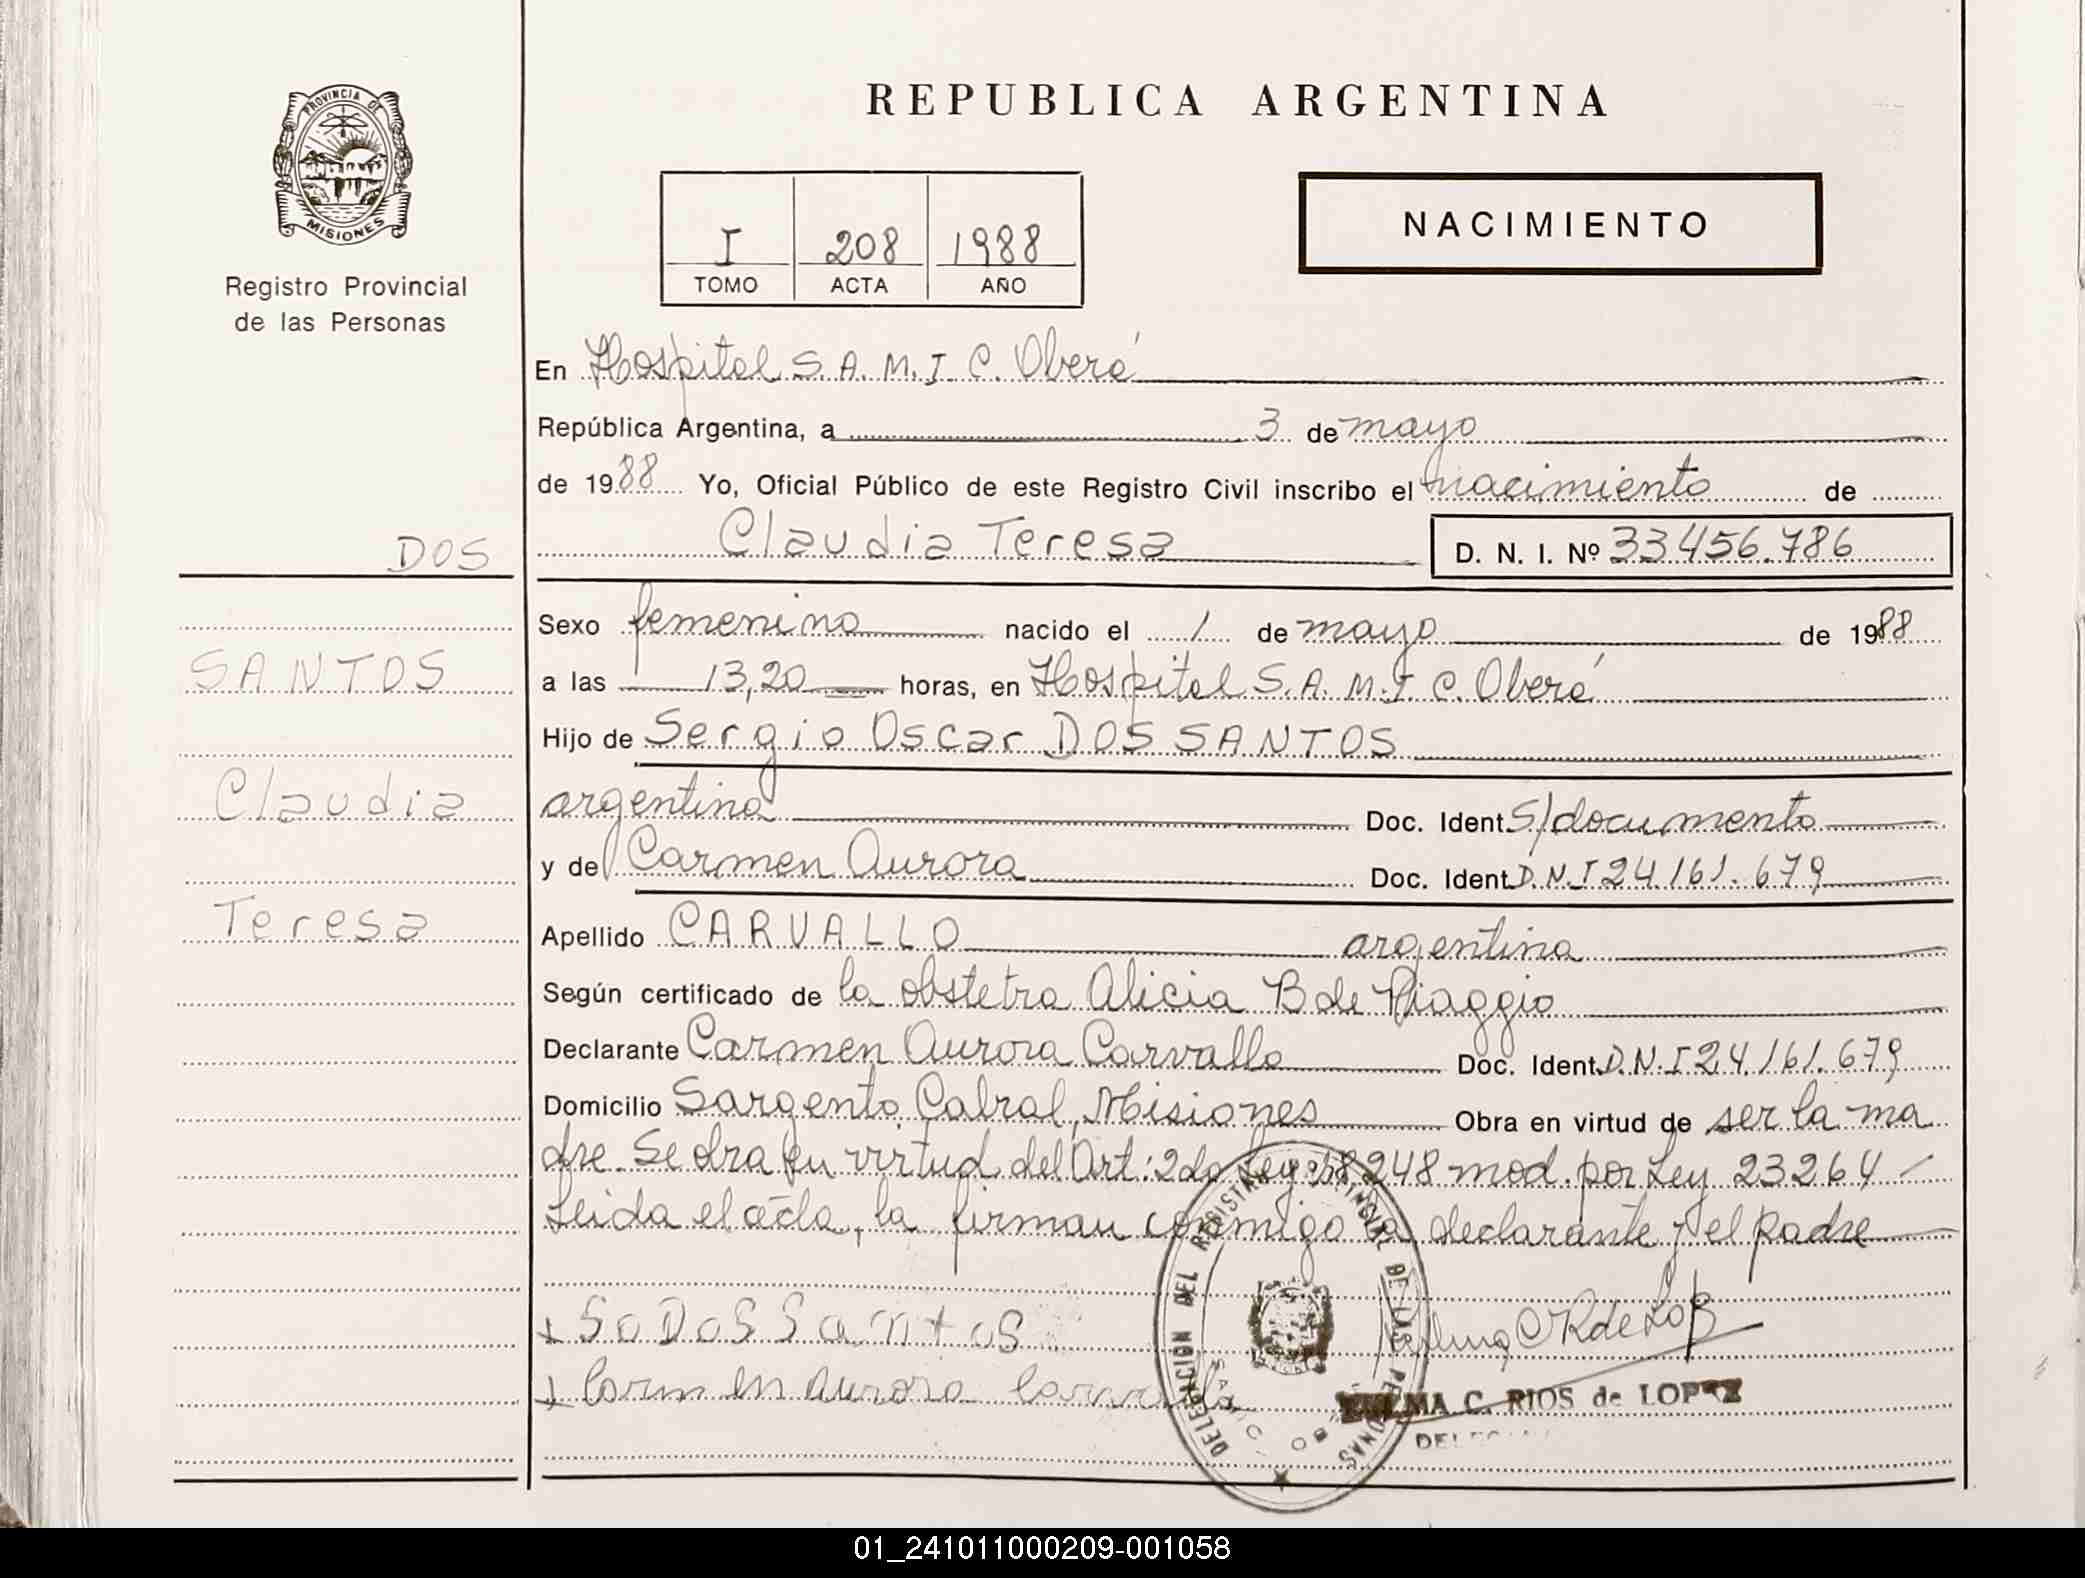 PROVINCIA DE
MISIONES
Registro Provincial
de las Personas
REPUBLICA ARGENTINA
I 208 1988
TOMO ACTA AÑO
NACIMIENTO
En Hospital S.A.M.I.C. Oberá
República Argentina, a 3 de mayo
de 1988 Yo, Oficial Público de este Registro Civil inscribo el nacimiento de
Claudia Teresa D. N. I. Nº 33.456.786
DOS
SANTOS
Claudia
Teresa
Sexo femenino nacido el 1 de mayo de 1988
a las 13,20 horas, en Hospital S.A.M.I.C. Oberá
Hijo de Sergio Oscar DOS SANTOS
argentina Doc. Ident. S/documento
y de Carmen Aurora Doc. Ident. D.N.I 24.161.679
Apellido CARVALLO argentina
Según certificado de la obstetra Alicia B de Piaggio
Declarante Carmen Aurora Carvallo Doc. Ident. D.N.I 24.161.679
Domicilio Sargento Cabral, Misiones Obra en virtud de ser la ma
dre. Se en virtud del Art: 2do Ley 18248 mod. por Ley 23264
Leida el acta, la firman conmigo la declarante y el padre
+ So DoS Santos
+ Carmen Aurora Carvallo
DELEGACION DEL REGISTRO PROVINCIAL DE LAS PERSONAS
C. RIOS de LOPEZ
01_241011000209-001058